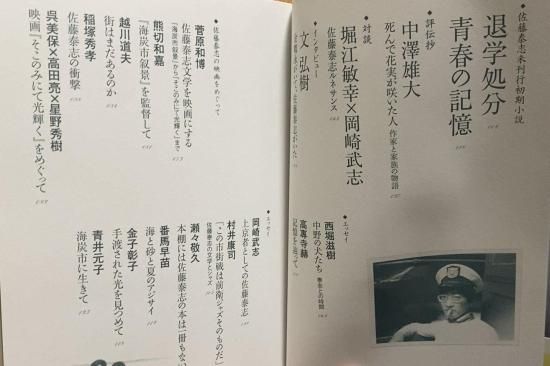 ◆佐藤泰志未刊行初期小説
退学処分
青春の記憶
◆評伝抄
中澤雄大
死んで花実が咲いた人 作家と家族の物語
◆対談
堀江敏幸×岡崎武志
佐藤泰志ルネサンス
◆インタビュー
文弘樹
◆エッセイ
西堀滋樹
中野の犬たち 泰志との時間
高専寺赫
記憶を巡って
◆佐藤泰志の映画をめぐって
菅原和博
佐藤泰志文学を映画にする
『海炭市叙景』から『そこのみにて光輝く』まで
熊切和嘉
『海炭市叙景』を監督して
越川道夫
街はまだあるのか
稲塚秀孝
佐藤泰志の衝撃
呉美保×高田亮×星野秀樹
映画『そこのみにて光輝く』をめぐって
◆エッセイ
岡崎武志
上京者としての佐藤泰志
村井康司
「この市街戦は前衛ジャズそのものだ」
佐藤泰志の文学とジャズ
瀬々敬久
本棚には佐藤泰志の本は一冊もない
番馬早苗
海と砂と夏のアジサイ
金子彰子
手渡された光を見つめて
青井元子
海炭市に生きて